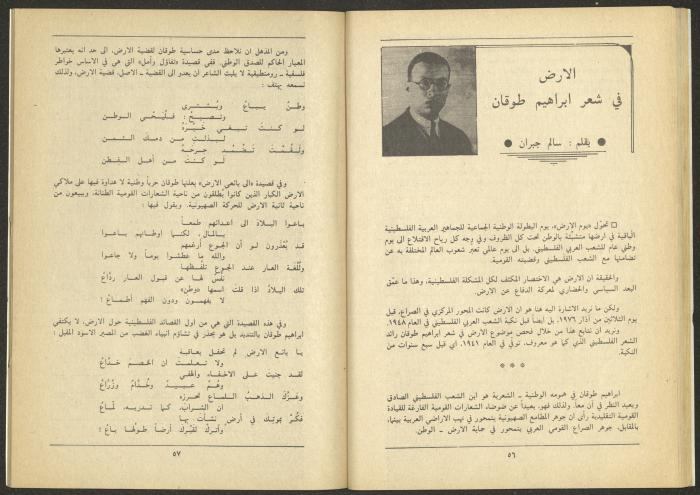 الارض
في شعر ابراهيم طوقان
● بقلم : سالم جبران ●
□ تحوّل «يوم الارض»، يوم البطولة الوطنية الجماعية للجماهير العربية الفلسطينية
الباقية في أرضها متشبثة بالوطن تحت كل الظروف وفي وجه كل رياح الاقتلاع الى يوم
وطني عام للشعب العربي الفلسطيني، بل الى يوم عالمي تعبّر شعوب العالم المختلفة به عن
تضامنها مع الشعب الفلسطيني وقضيته القومية.
والحقيقة ان الارض هي الاختصار المكثف لكل المشكلة الفلسطينية، وهذا ما عمّق
البعد السياسي والحضاري لمعركة الدفاع عن الارض.
ولكن ما نريد الاشارة اليه هنا هو ان الارض كانت المحور المركزي في الصراع، قبل
يوم الثلاثين من آذار ١٩٧٦، بل ايضاً قبل نكبة الشعب العربي الفلسطيني في العام ١٩٤٨.
ونريد ان نتابع هذا من خلال فحص موضوع الارض في شعر ابراهيم طوقان رائد
الشعر الفلسطيني الذي كما هو معروف، توفي في العام ١٩٤١، اي قبل سبع سنوات من
النكبة.
* * *
ابراهيم طوقان في همومه الوطنية ـ الشعرية هو ابن الشعب الفلسطيني الصادق
وبعيد النظر في آن معاً. ولذلك فهو، بعيداً عن ضوضاء الشعارات القومية الفارغة للقيادة
القومية التقليدية رأى ان جوهر المطامع الصهيونية يتمحور في نهب الاراضي العربية بينما،
بالمقابل، جوهر الصراع القومي العربي يتمحور في حماية الارض ـ الوطن.
٥٦
ومن المذهل ان نلاحظ مدى حساسية طوقان لقضية الارض، الى حد انه يعتبرها
المعيار الحاكم للصدق الوطني. ففي قصيدة «تفاؤل وأمل» التي هي في الاساس خواطر
فلسفية ـ رومنطيقية لا يلبث الشاعر ان يعدو الى القضية ـ الاصل، قضية الارض، ولذلك
نسمعه يهتف :
وطنٌ يباعُ ويُشترى
وتصيحُ : فليحي الوطن
لو كنتَ تبغي خيرَهُ
لبذلتَ من دمك الثمن
ولقمتَ تضمّد جرحهُ
لو كنتَ من أهل الفِطن
وفي قصيدة «الى بائعي الارض» يعلنها طوقان حرباً وطنية لا هداوة فيها على ملاكي
الارض الكبار الذين كانوا يُطلقون من ناحية الشعارات القومية الطنانة، ويبيعون من
ناحية ثانية الارض للحركة الصهيونية. ويقول فيها :
باعوا البلادَ الى اعدائهم طمعاً
بالمال، لكنما اوطانهم باعوا
قد يُعذرون لو أن الجوع أرغمهم
والله ما عطشوا يوماً ولا جاعوا
وبُلْغة العار عند الجوع تلفظها
نفسٌ لها عن قبول العار ردّاعُ
تلك البلادُ اذا قلتَ اسمها «وطن»
لا يفهمون ودون الفهم أطماعُ !
وفي هذه القصيدة التي هي من اول القصائد الفلسطينية حول الارض، لا يكتفي
ابراهيم طوقان بالتنديد بل هو يحذر في تشاؤم انبياء الغضب من المصير الاسود المقبل :
يا بائع الارض لم تحفل بعاقبة
ولا تعلمت ان الخصم خدّاعُ
لقد جنيت على الاحفاد والهفي
وهُم عبيدٌ وخُدّامٌ وزُرّاعُ
وغرّك الذهب اللماع تحرزه
ان السراب، كما تدريه، لمّاعُ
فكّر بموتك في أرض نشأت بها
واترك لقبرك أرضاً طولها باعُ !
٥٧